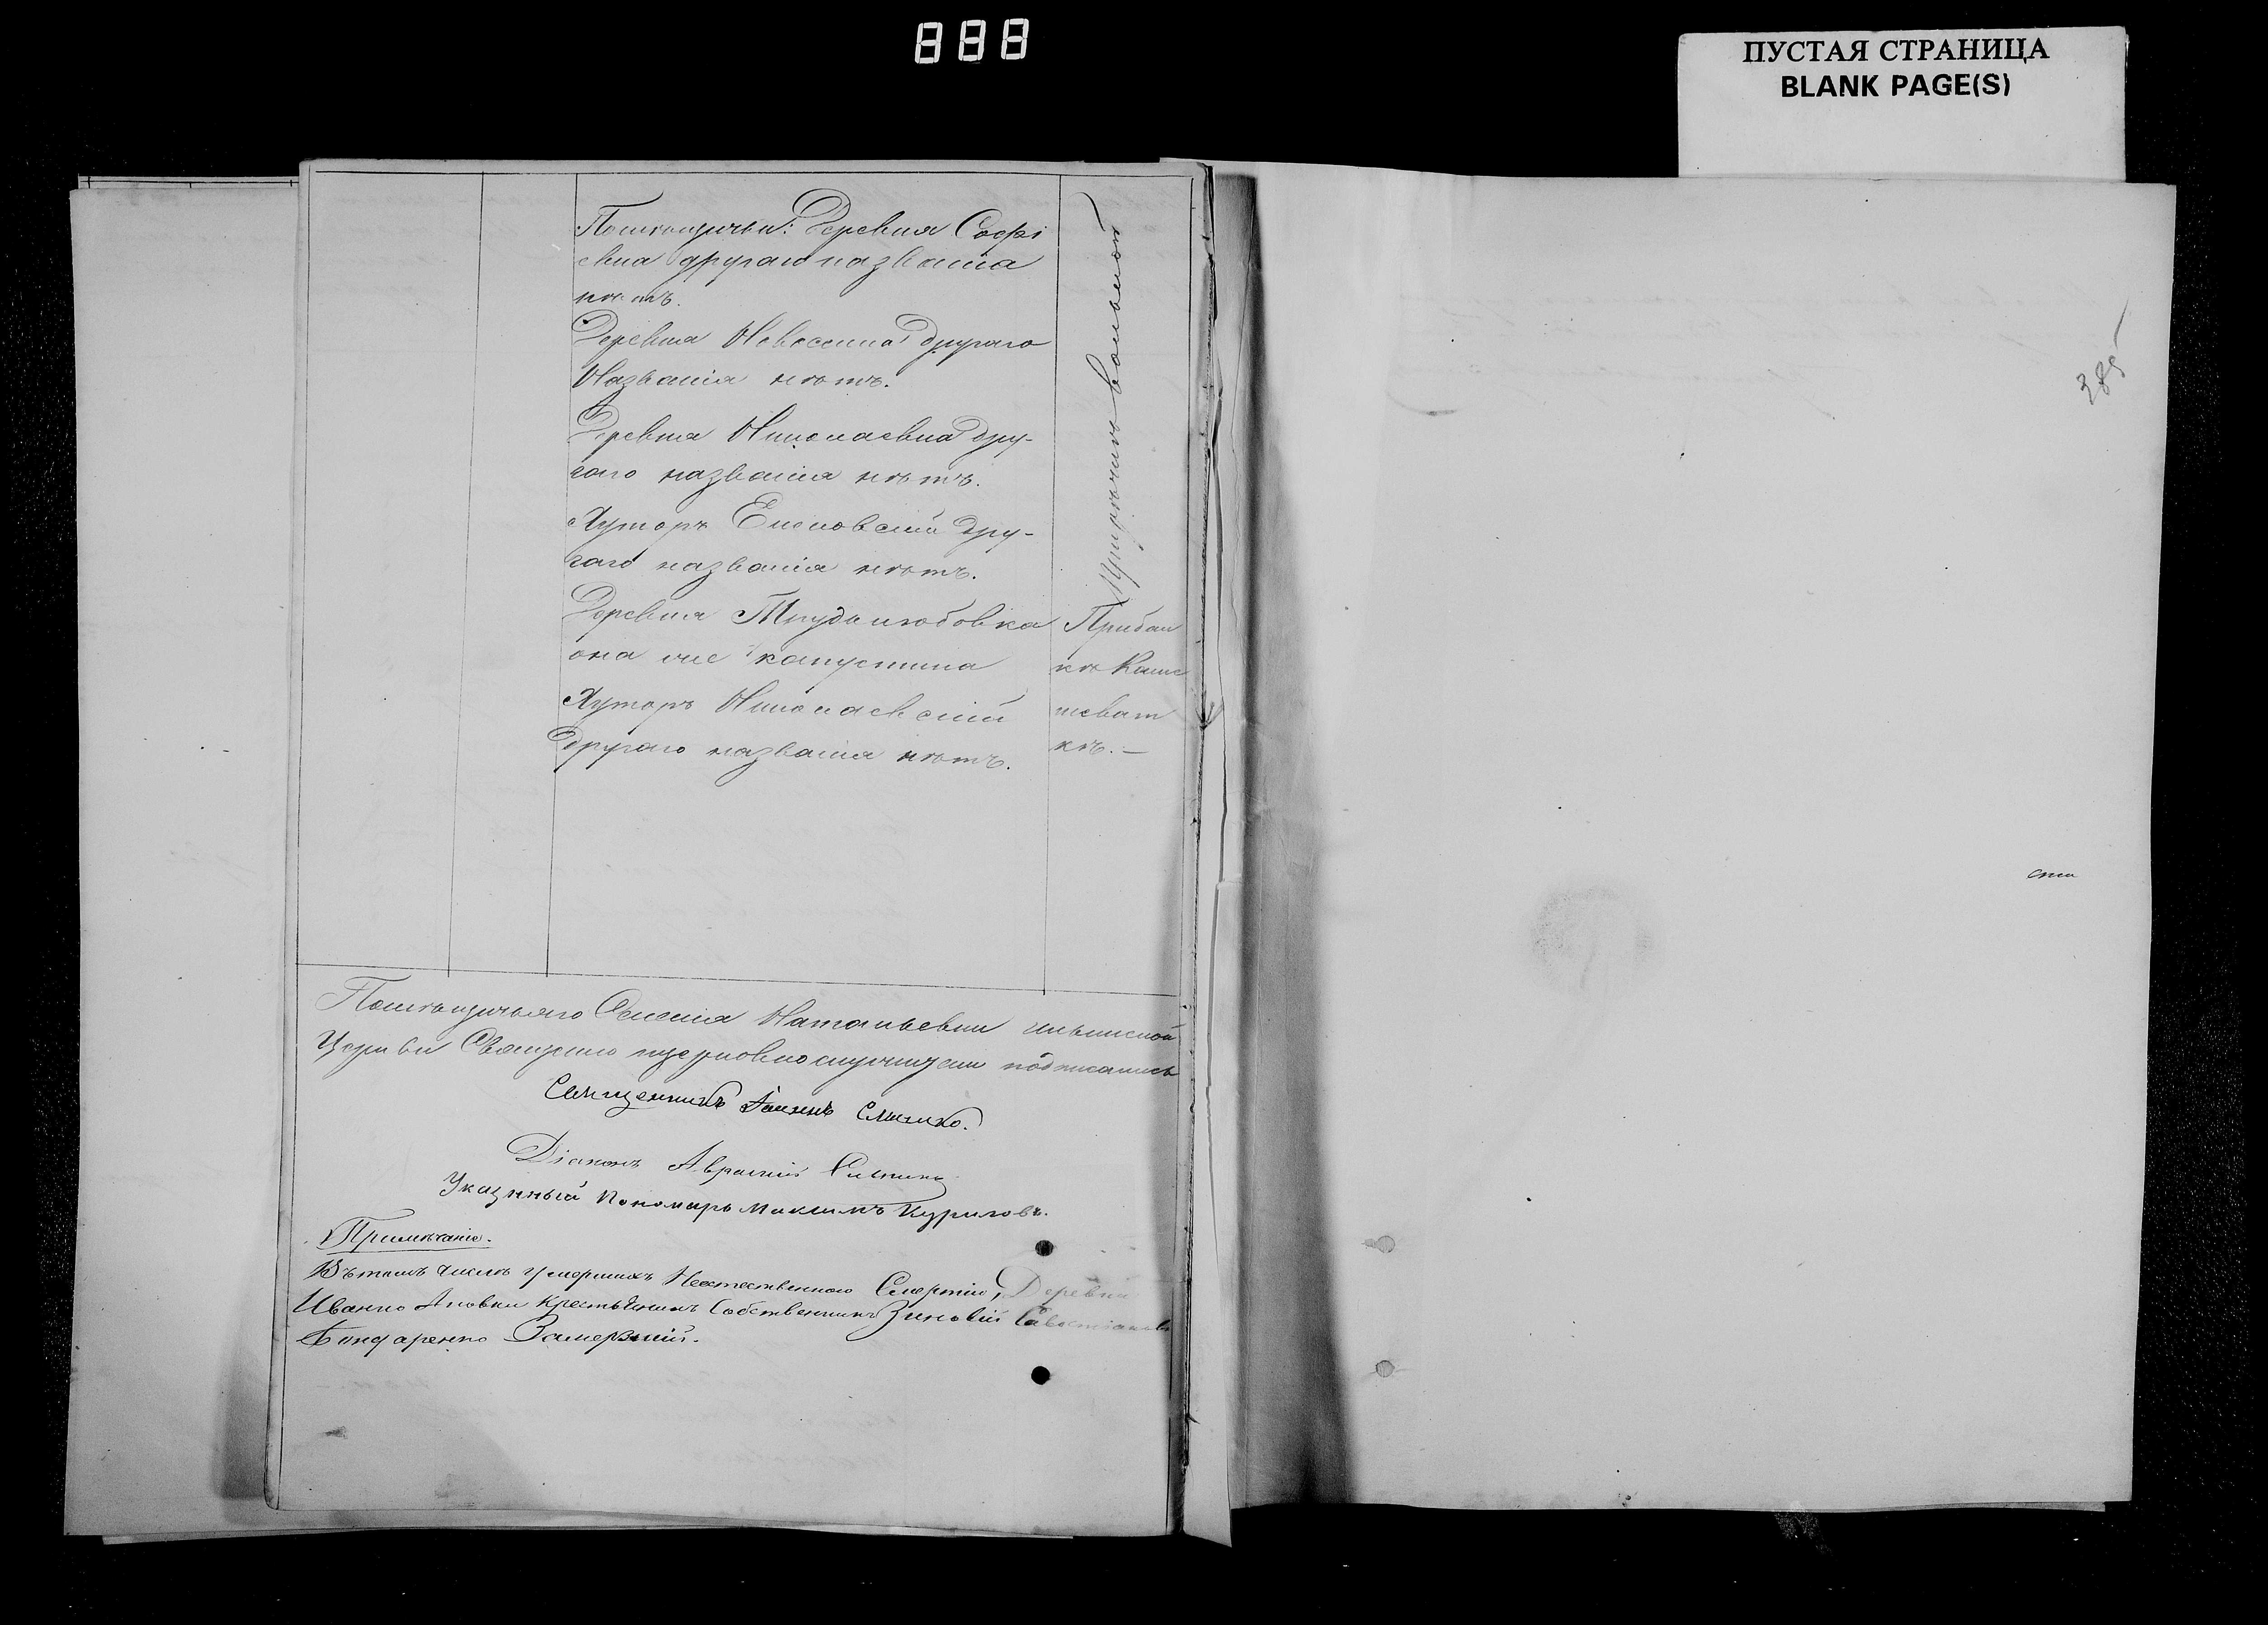 888
ПУСТАЯ СТРАНИЦА
BLANK PAGE(S)
Помѣщичьи: Деревня Софі
евка другаго названія
нѣтъ.
Деревня Новоселка другаго
Названія нѣтъ.
Деревня Николаевка дру-
гаго названія нѣтъ.
Хуторъ Еленовскій дру-
гаго названія нѣтъ.
Деревня Трудолюбовка
она же капустина
Хуторъ Николаевскій
другаго названія нѣтъ.
При рѣчкѣ вольной
При бал
кѣ Каме
неват
кѣ.—
Помѣщичьяго Селенія Натальевки
Церкви Священно церковнослужители подписались
Священникъ Іоаннъ
Діаконъ
Указнный Пономарь Максимъ Куриловъ.
Примѣчаніе.
Въ томъ числѣ умершихъ Неестественною Смертію, Деревни
Крестьянинъ Собственникъ Зиновій
Бондаренко Замерзшій.
385